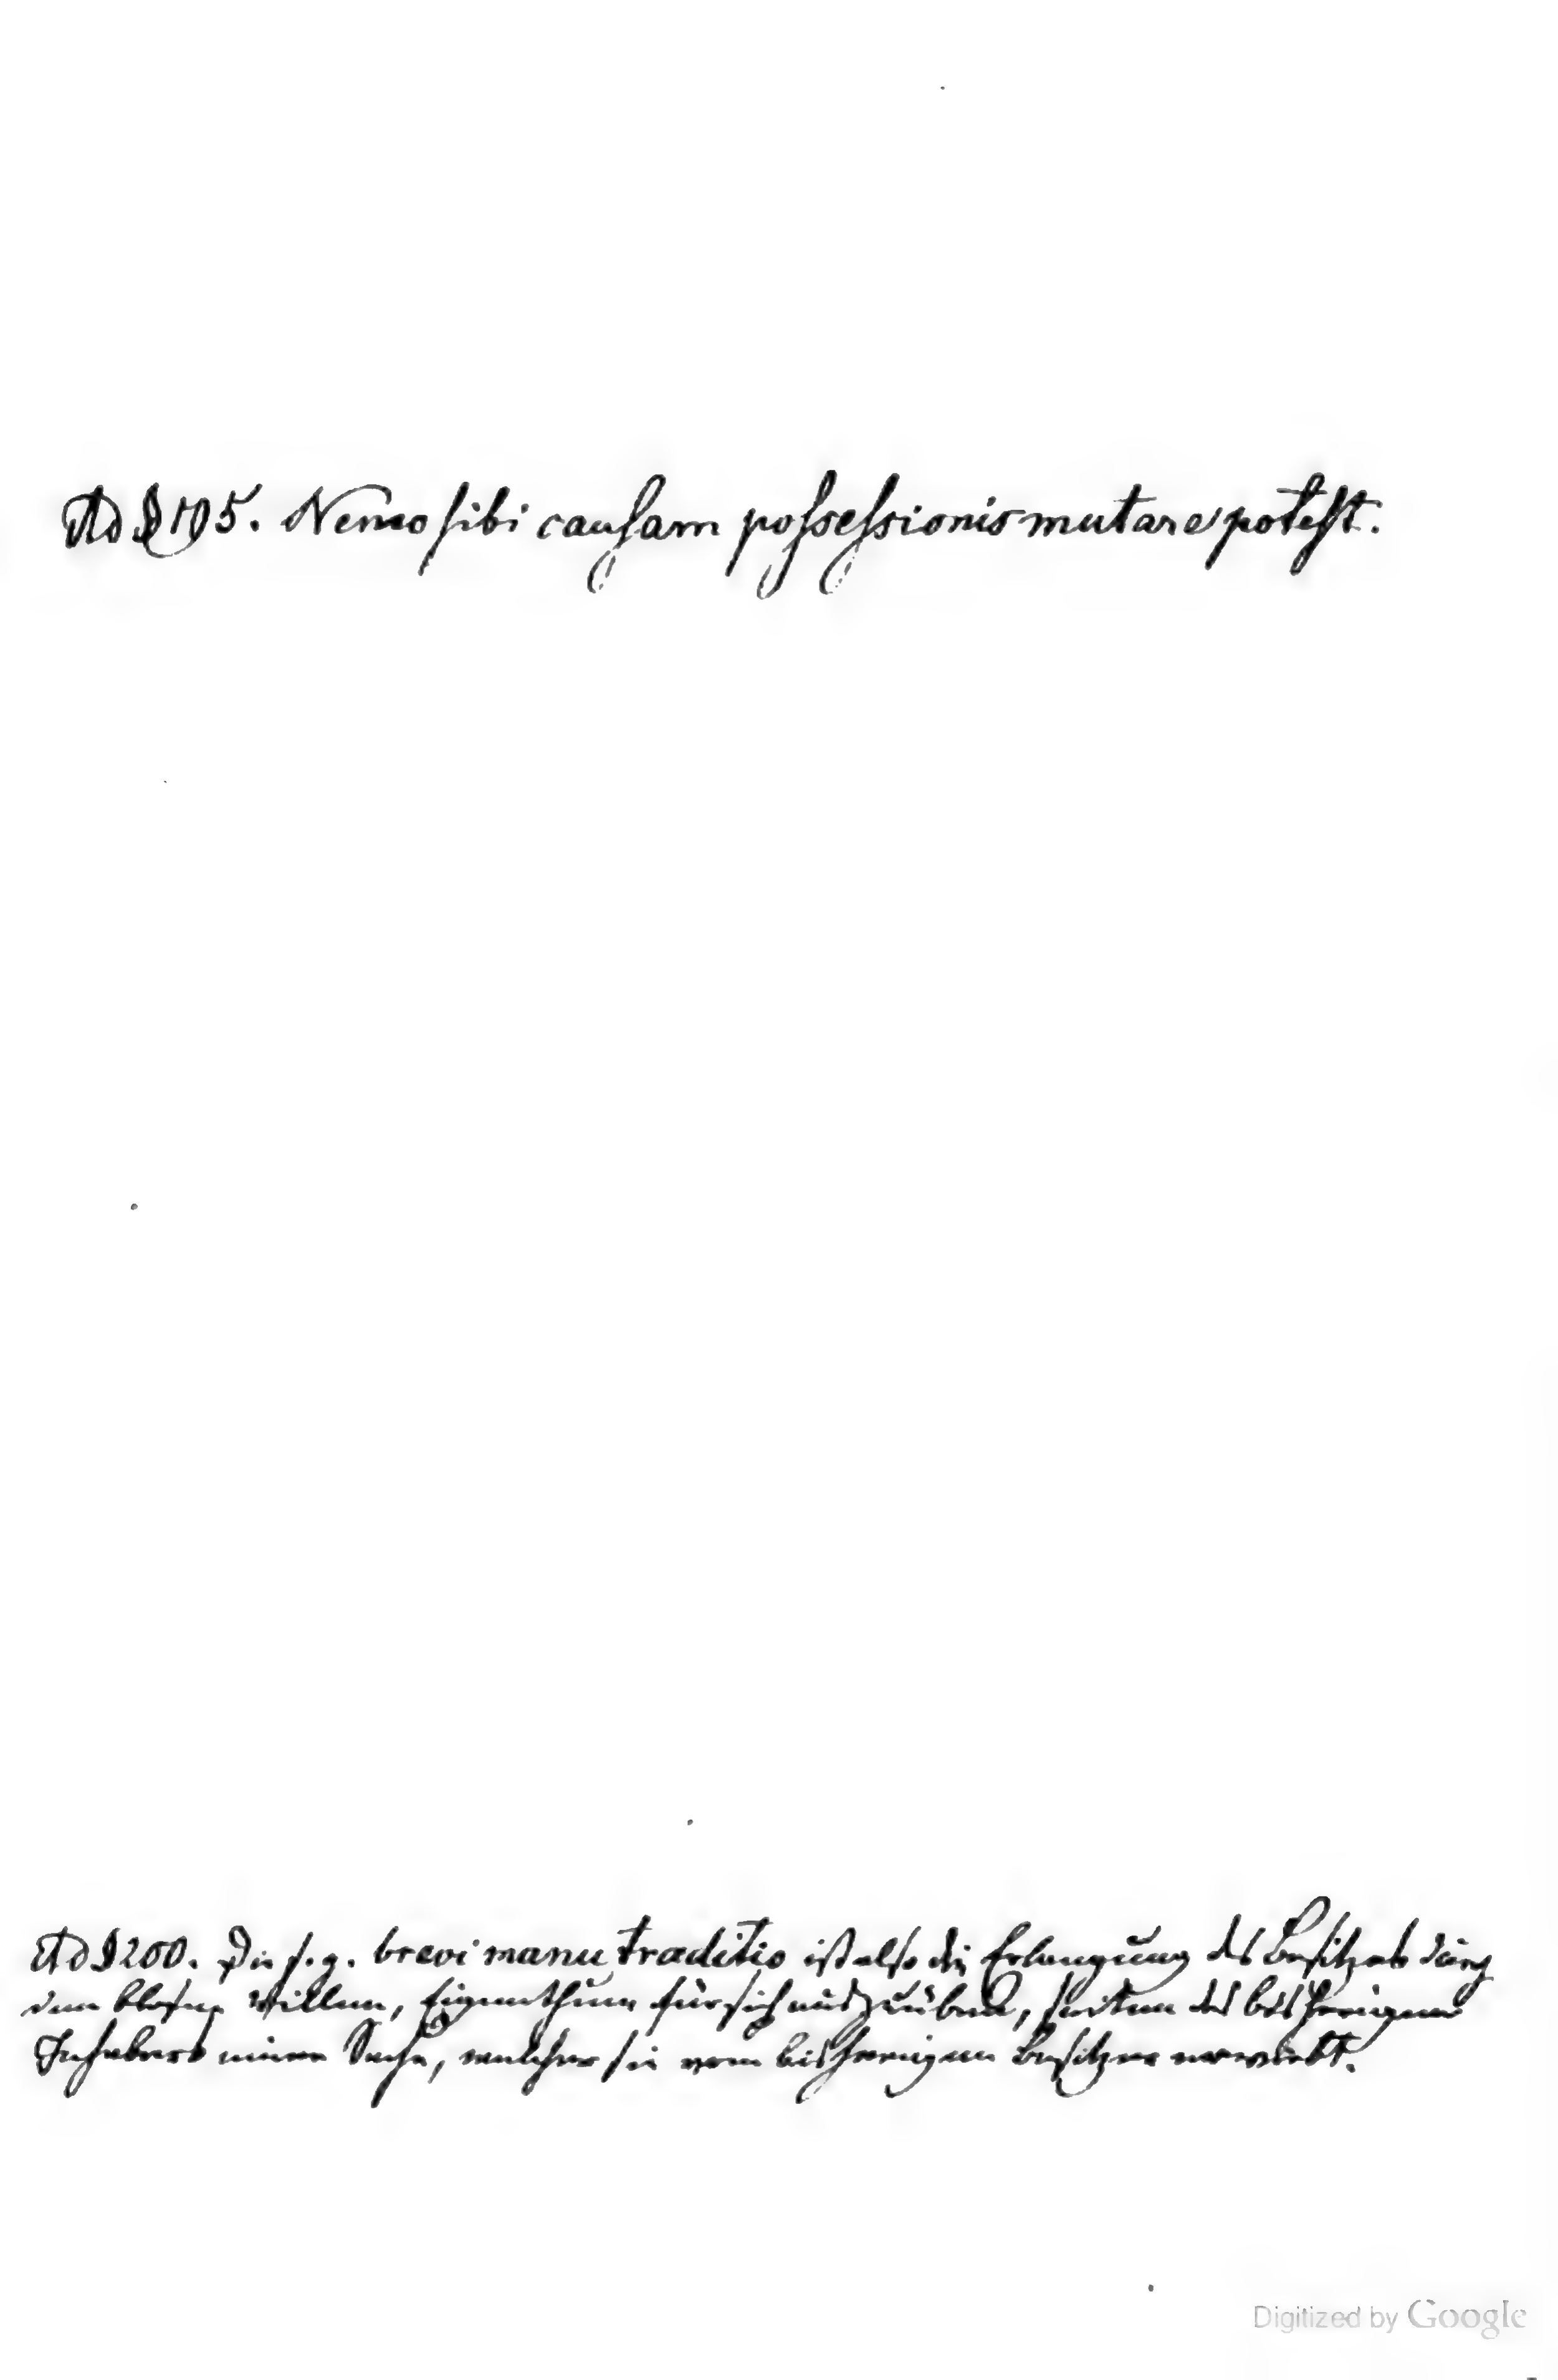 Ad § 195. Nemo sibi causam possessionis mutare potest.
Ad § 200. Die s. g. brevi manu traditio ist also die Erlangung des Besitzes durch
den bloßen Willen, Eigenthum für sich auszuüben, seiten des bisherigen
Inhabers einer Sache, welcher sie vom bisherigen Besitzer erwirbt.
Digitized by Google